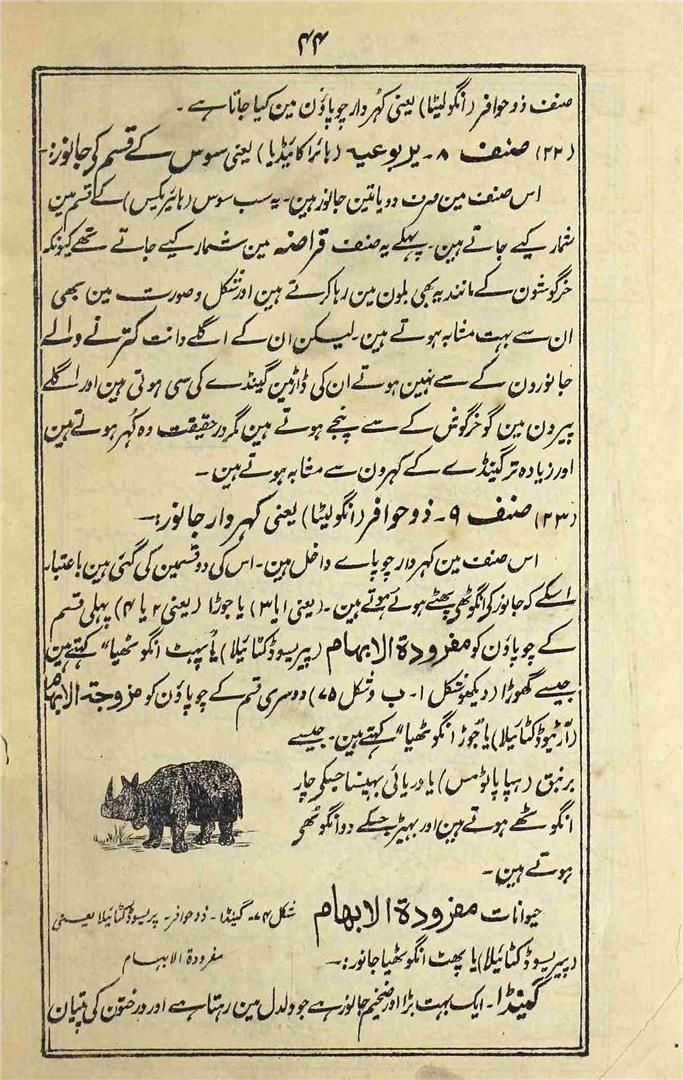 ۴۴
صنف ذوحوافر (انگولیٹا) یعنی کہردار چوپاؤن مین کیا جاتا ہے۔
(۲۲) صنف ۸۔ یربوعیہ (ہائراکائیڈیا) یعنی سوس کے قسم کی جانور:۔
اس صنف مین صرف دو یا تین جانور ہین۔ یہ سب سوس (ہائیریکس) کے قسم مین
شمار کیے جاتے ہین۔ پہلے یہ صنف قراضہ مین شمار کیے جاتے تھے کیونکہ
خرگوشون کے مانند یہ بھی بلون مین رہا کرتے ہین اور شکل و صورت مین بھی
ان سے بہت مشابہ ہوتے ہین۔ لیکن ان کے اگلے دانت کترنے والے
جانورون کے سے نہین ہوتے ان کی ڈاڑہین گینڈے کی سی ہوتی ہین اور اگلے
پیرون مین گو خرگوش کے سے پنجے ہوتے ہین مگر درحقیقت وہ کُہر ہوتے ہین
اور زیادہ تر گینڈے کے کہرون سے مشابہ ہوتے ہین۔
(۲۳) صنف ۹۔ ذوحوافر (انگولیٹا) یعنی کہردار جانور:۔
اس صنف مین کہردار چوپاے داخل ہین۔ اس کی دو قسمین کی گئی ہین باعتبار
اسکے کہ جانور کی انگوٹھی پھٹے ہوئے ہوتے ہین۔ (یعنی ۱ یا ۳) یا جوڑا (یعنی ۲ یا ۴) پہلی قسم
کے چوپاؤن کو مفرودۃ الابہام (پیریسوڈکٹائیلا) یا "پہٹ انگوٹھیا" کہتے ہین
جیسے گھوڑا (دیکھو شکل ۱۔ ب و شکل ۷۵) دوسری قسم کے چوپاؤن کو مزوجۃ الابہام
(آرٹیوڈکٹائیلا) یا "جوڑ انگوٹھیا" کہتے ہین۔ جیسے
برنیق (ہپاپاٹومس) یا دریائی بہینسا جسکی چار
انگوٹھے ہوتے ہین اور بہیڑ جسکے دو انگوٹھی
ہوتے ہین۔
حیوانات مفرودۃ الابہام
شکل ۷۴۔ گینڈا۔ ذوحوافر۔ پریسوڈکٹائیلا یعنی
مفرودۃ الابہام
(پیریسوڈکٹائیلا) یا پھٹ انگوٹھیا جانور:۔
گینڈا۔ ایک بہت بڑا اور ضخیم جانور ہے جو دلدل مین رہتا ہے اور درختون کی پتیان